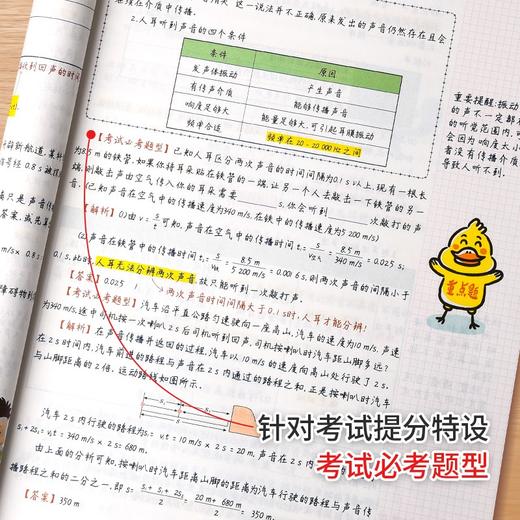 这一说法并不正确.原来发出的声音仍然存在且会
继续在介质中传播.
2.人耳听到声音的四个条件
条件 原因
发声体振动 产生声音
有传声介质 能够传播声音
响度足够大 能量足够大,可引起耳膜振动
频率合适 频率在20-20 000 Hz之间
重要提醒:振动
的声不一定都
的听觉范围内,
会因为响度太小
者没有传播介质
导致人听不到.
【考试必考题型】已知人耳区分两次声音的时间间隔为0.1s以上,现有一根长
为8.5m的铁管,如果你将耳朵贴在铁管的一端,让另一个人去敲击一下铁管的另一
端,则敲击声由空气传入你的耳朵需要____s,你会听到____次敲打的声
(已知声音在空气中的传播速度为340 m/s,在铁中的传播速度为5 200 m/s)
【解析】(1)由v=s/t可知,声音在空气中的传播时间t₁=s/v空=8.5 m/340 m/s=0.025 s;
(2)声音在铁管中的传播时间t₂=s/v铁=8.5 m/5 200 m/s=0.0016 s,则两次声音的间隔小于
0.1s,此时,人耳无法分辨两次声音,故只能听到一次敲打声.
【答案】0.025 1 两次声音时间间隔大于0.1s时,人耳才能分辨!
【考试必考题型】汽车沿平直公路匀速驶向一座高山,汽车的速度为10 m/s,声速
为340 m/s,途中司机按一次喇叭,2s后司机听到回声,司机按喇叭时汽车距山脚多远?
【解析】在声音传播并返回的过程,汽车以10 m/s的速度向高山处行驶了2s.
在2s时间内,汽车前进的路程与声音在2s内通过的路程之和,正是按喇叭时汽车
与山脚距离的2倍.运动路线如图所示.
重点题
汽车2s内行驶的路程为s₁=v₁t=10 m/s×2s=20 m,声音在2s内
s₁+2s₂=v₂t=340 m/s×2s=680 m.
由上面的分析可知,按喇叭时汽车距离山脚的距离为汽车行驶的路程与声音传
播路程之和的二分之一,即s=s₁+s₁+2s₂/2=20 m+680 m/2=350 m.
【答案】350 m
针对考试提分特设
考试必考题型